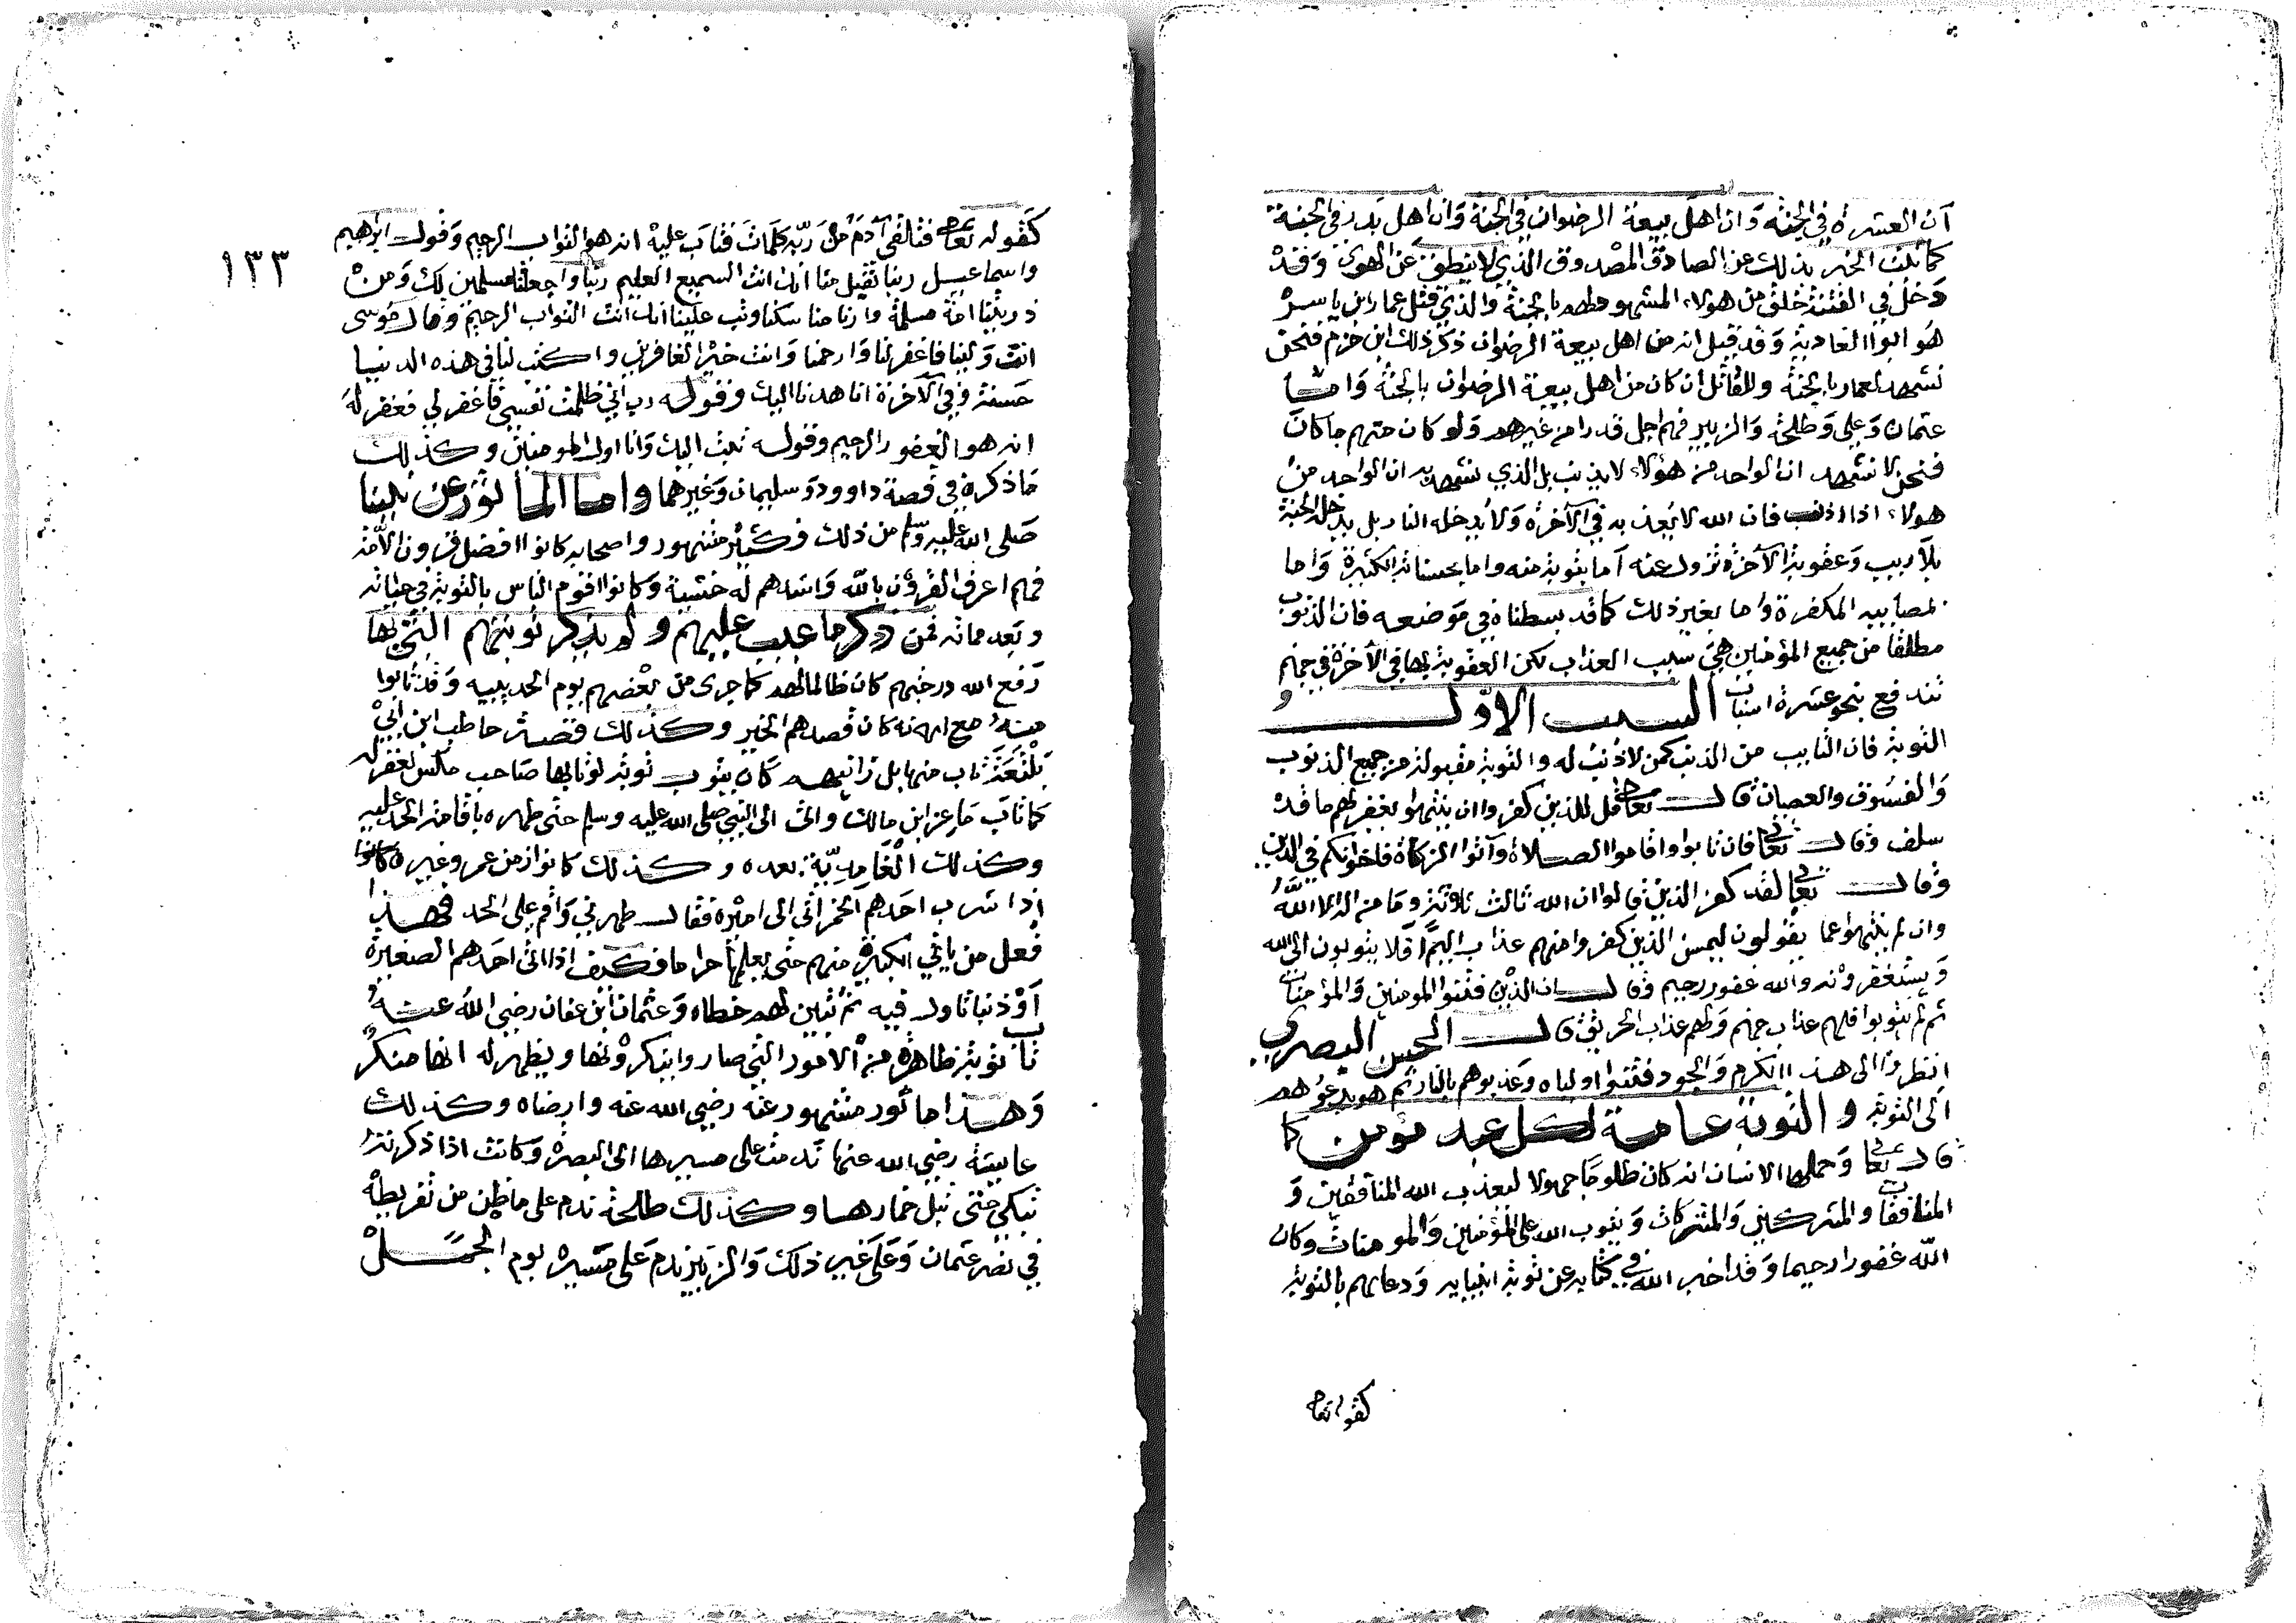 ان العشرة في الجنة وان اهل بيعة الرضوان في الجنة وان اهل بدر في الجنة
كما ثبت الخبر بذلك عن الصادق المصدوق الذي لا ينطق عن الهوى وقد
دخل في الفتنة خلق من هولاء المشهود لهم بالجنة والذي قتل عمار ابن ياسر
هو ابوا الغادية وقد قيل انه من اهل بيعة الرضوان ذكر ذلك ابن حزم فنحن
نشهد لعمار بالجنة وللقاتل ان كان من اهل بيعة الرضوان بالجنة واما
عثمان وعلي وطلحة والزبير فهم اجل قدرا من غيرهم ولو كان منهم ما كان
فنحن لا نشهد ان الواحد من هؤلاء لا يذنب بل الذي نشهد به ان الواحد من
هولاء اذا اذنب فان الله لا يعذبه في الآخرة ولا يدخله النار بل يدخله الجنة
بلا ريب وعقوبة الآخرة تزول عنه اما بتوبة منه واما بحسناته الكثيرة واما
بمصايبه المكفرة واما بغير ذلك كما قد بسطناه في موضعه فان الذنوب
مطلقا من جميع المؤمنين هي سبب العذاب لكن العقوبة بها في الآخرة في جهنم
تندفع بنحو عشرة اسباب السبب الاول
التوبة فان التايب من الذنب كمن لا ذنب له والتوبة مقبولة من جميع الذنوب
والفسوق والعصيان قال تعالى قل للذين كفروا ان ينتهوا يغفر لهم ما قد
سلف وقال تعالى فان تابوا واقاموا الصلاة وآتوا الزكاة فاخوانكم في الدين
وقال تعالى لقد كفر الذين قالوا ان الله ثالث ثلاثة وما من اله الا الله
وان لم ينتهوا عما يقولون ليمسن الذين كفروا منهم عذاب اليم افلا يتوبون الى الله
ويستغفرونه والله غفور رحيم وقال ان الذين فتنوا المومنين والمؤمنات
ثم لم يتوبوا فلهم عذاب جهنم ولهم عذاب الحريق قال الحسن البصري
انظروا الى هذا الكرم والجود فتنوا اولياه وعذبوهم بالنار ثم هو يدعوهم
الى التوبة والتوبة عامة لكل عبد مؤمن كما
قال تعالى وحملها الانسان انه كان ظلوما جهولا ليعذب الله المنافقين و
المنافقات والمشركين والمشركات ويتوب الله على المؤمنين والمومنات وكان
الله غفورا رحيما وقد اخبر الله في كتابه عن توبة انبيايه ودعايهم بالتوبة
كقوله تعالى
١٣٣
كقوله تعالى فتلقى آدم من ربه كلمات فتاب عليه انه هو التواب الرحيم وقول ابراهيم
واسماعيل ربنا تقبل منا انك انت السميع العليم ربنا واجعلنا مسلمين لك ومن
ذريتنا امة مسلمة وارنا مناسكنا وتب علينا انك انت التواب الرحيم وقال موسى
انت ولينا فاغفر لنا وارحمنا وانت خير الغافرين واكتب لنا في هذه الدنيا
حسنة وفي الآخرة انا هدنا اليك وقوله رب اني ظلمت نفسي فاغفر لي فغفر له
انه هو الغفور الرحيم وقوله تبت اليك وانا اول المومنين وكذلك
ما ذكره في قصة داوود وسليمان وغيرهما واما المأثور عن نبينا
صلى الله عليه وسلم من ذلك فكثير مشهور واصحابه كانوا افضل قرون الامة
فهم اعرف القرون بالله واشدهم له خشية وكانوا اقوم الناس بالتوبة في حياته
وبعد مماته فمن ذكر ما عيب عليهم ولم يذكر توبتهم التي بها
رفع الله درجتهم كان ظالما لهم كما جرى من بعضهم يوم الحديبيه وقد تابوا
منه مع انه كان قصدهم الخير وكذلك قصة حاطب ابن ابي
بلتعة تاب منها بل زانيهم كان يتوب توبة لو تابها صاحب مكس لغفر له
كما تاب ماعز ابن مالك واتى الى النبي صلى الله عليه وسلم حتى طهره باقامة الحد عليه
وكذلك الغامدية بعده وكذلك كانوا زمن عمر وغيره كانوا
اذا شرب احدهم الخمر اتى الى اميره فقال طهرني واقم علي الحد فهذا
فعل من ياتي الكبيرة منهم حتى يعلمها حراما فكيف اذا اتى احدهم الصغيرة
او ذنبا تاول فيه ثم تبين لهم خطاه وعثمان ابن عفان رضي الله عنه
تاب توبة ظاهرة من الامور التي صاروا ينكرونها ويظهر له انها منكر
وهذا ماثور مشهور عنه رضي الله عنه وارضاه وكذلك
عايشة رضي الله عنها ندمت على مسيرها الى البصرة وكانت اذا ذكرته
تبكي حتى تبل خمارها وكذلك طلحة ندم على ما ظن من تفريطه
في نصر عثمان وعلى غير ذلك والزبير ندم على مسيره يوم الجمل